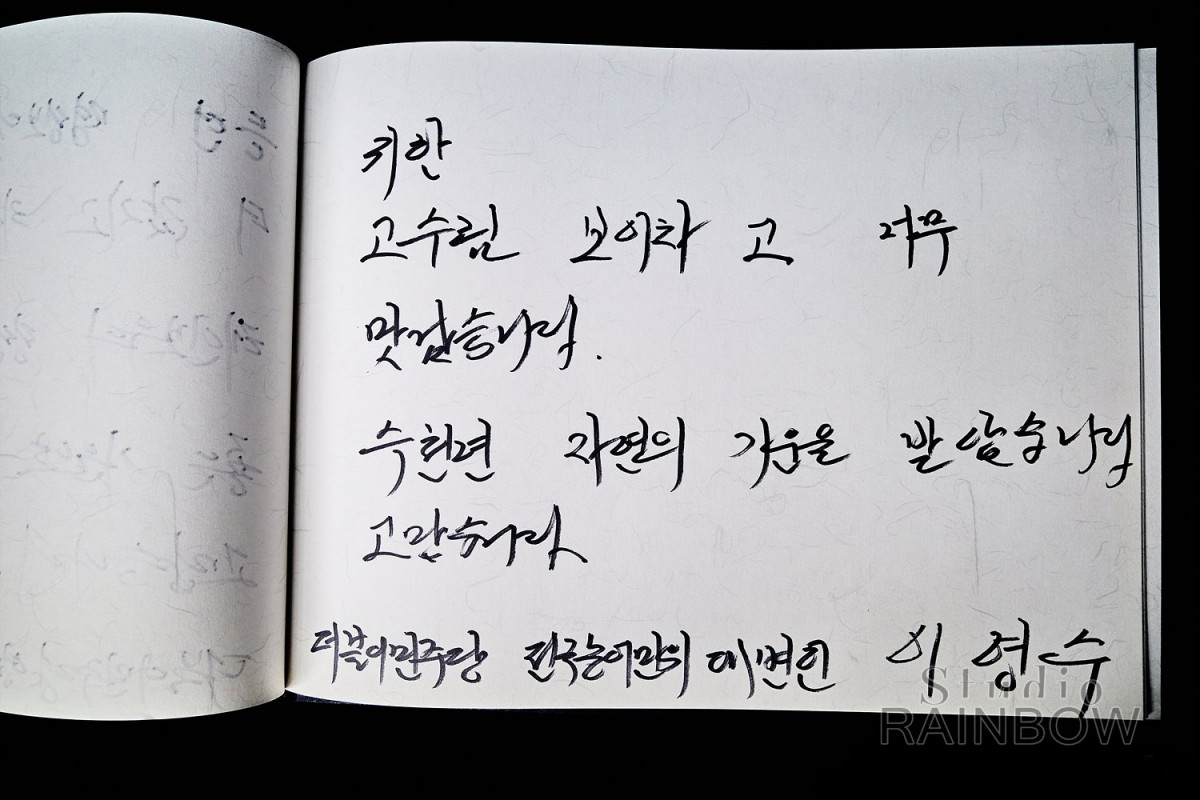 귀한
고수림 보이차 고 너무
수천년 자연의 기운을 받았습니다
고맙습니다
더불어민주당 전국농어민위 대변인 이영수
Studio
RAINBOW